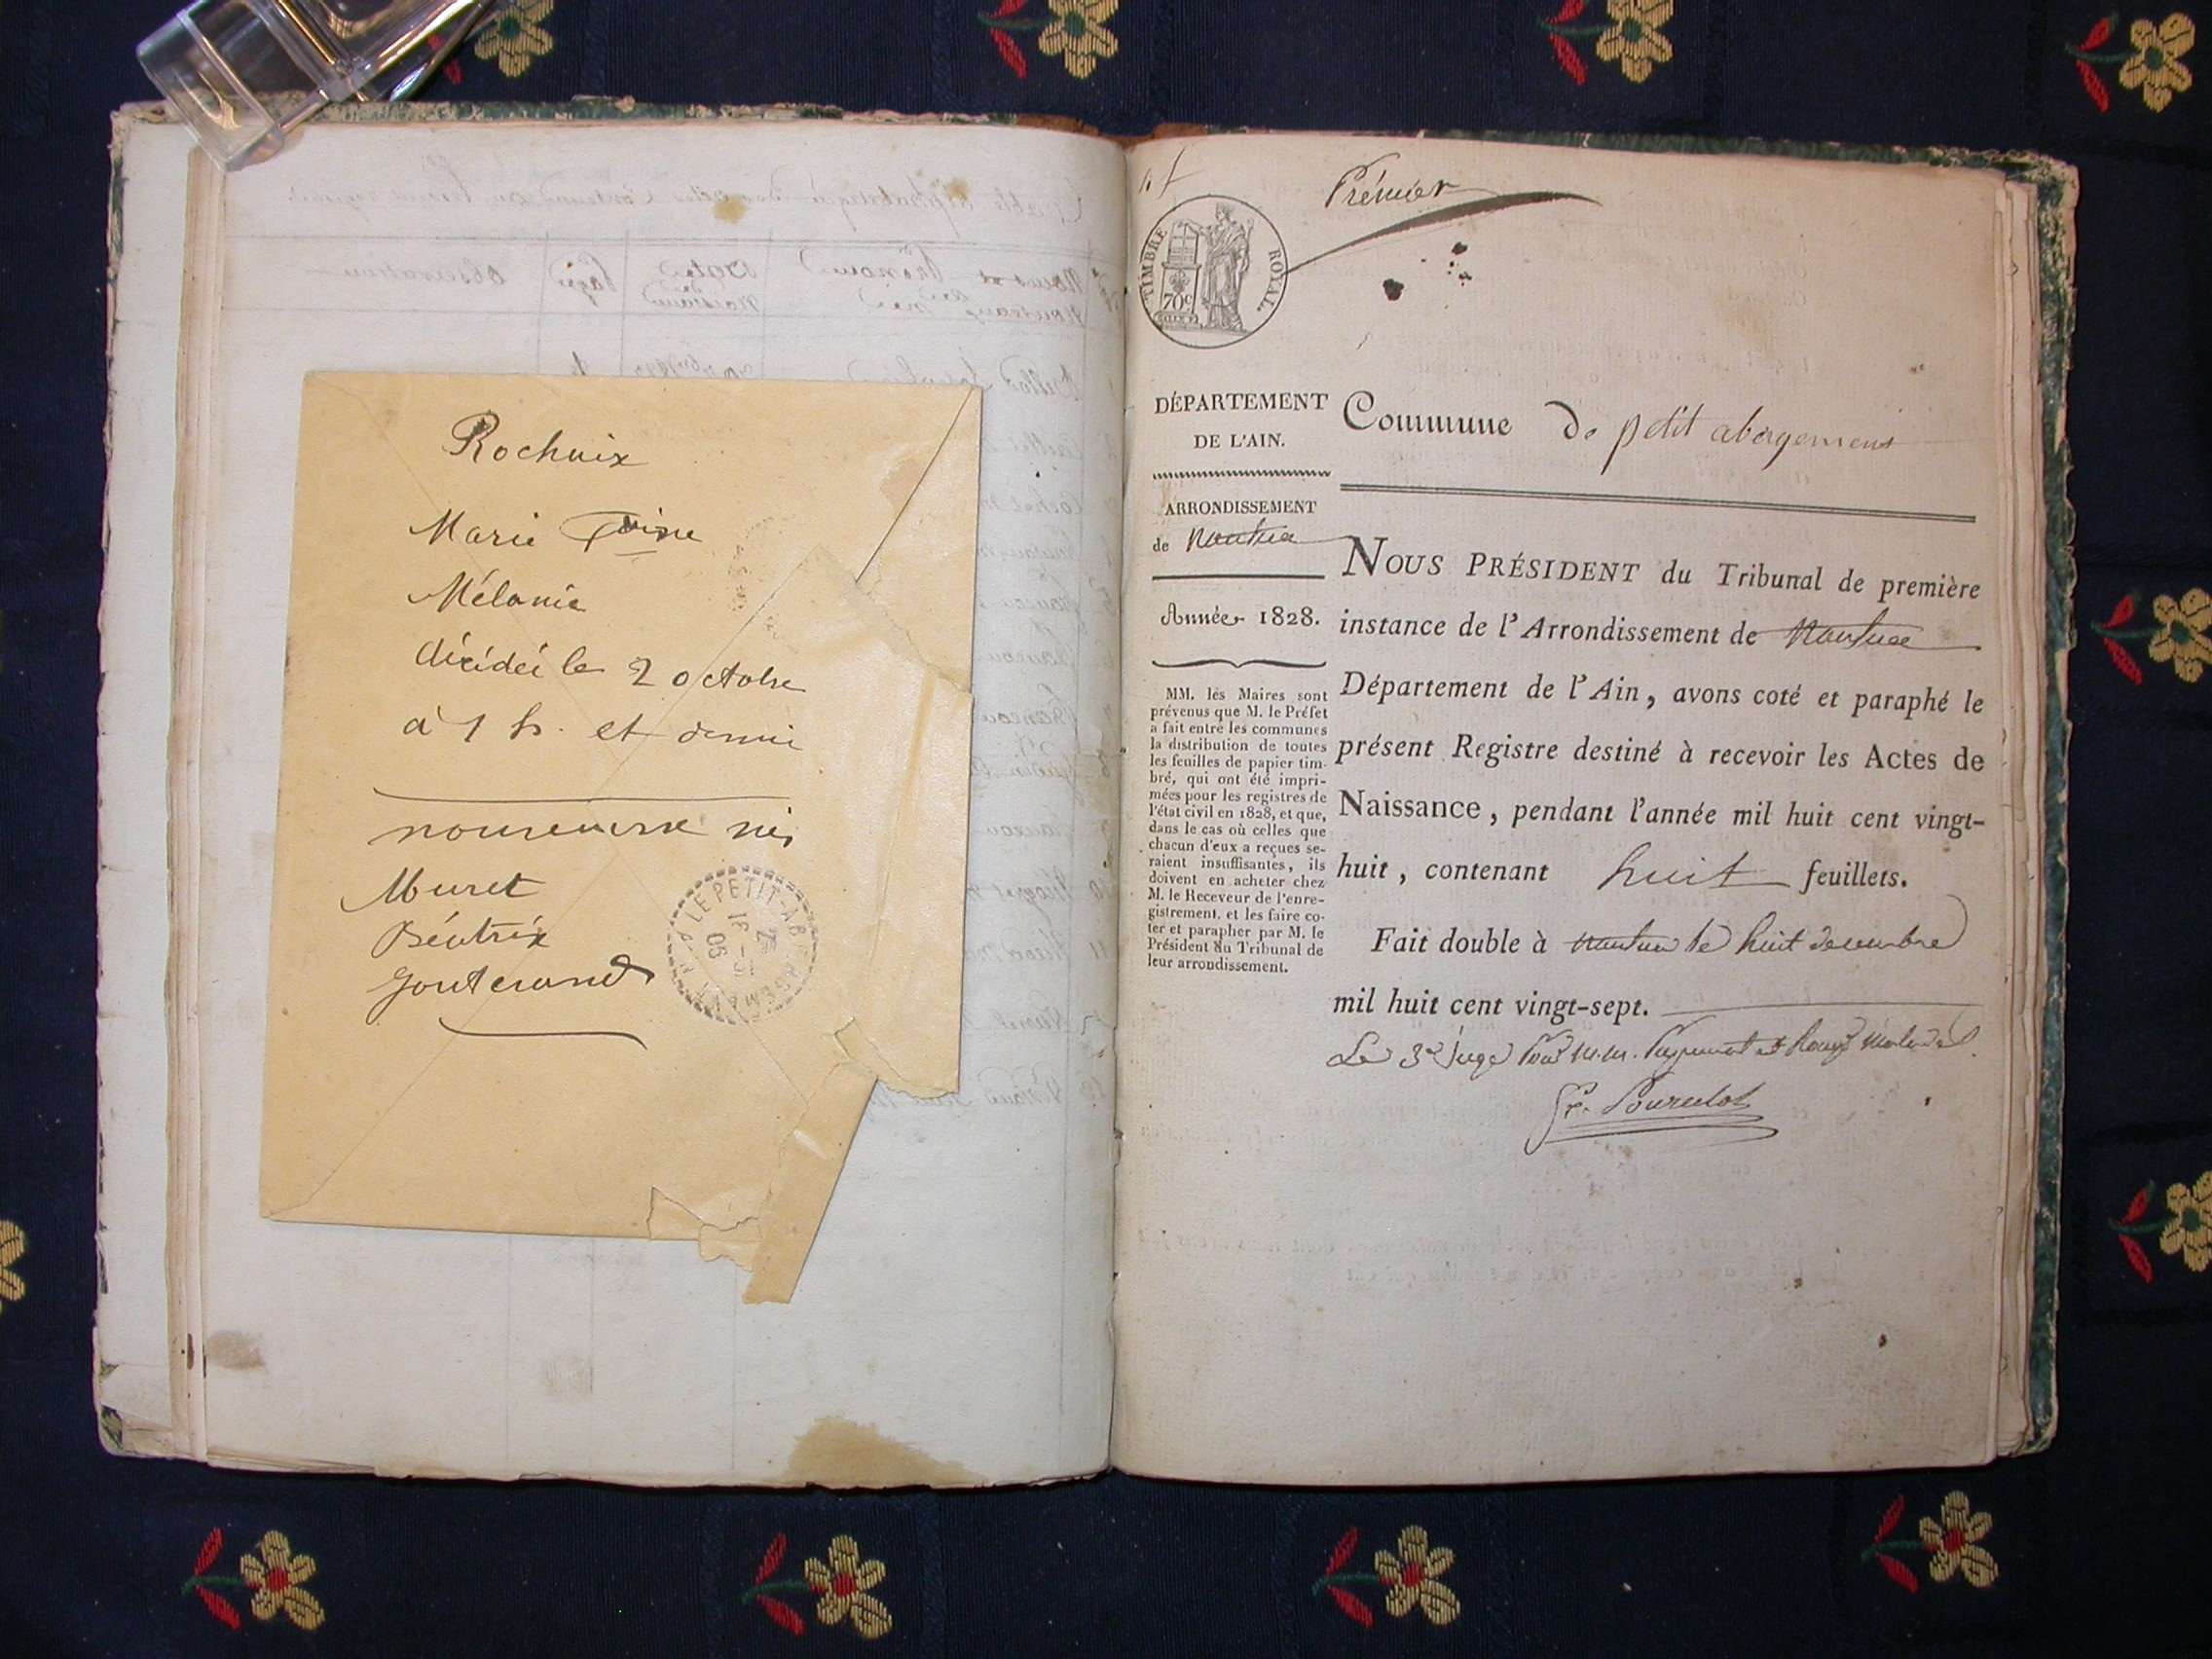 Rochaix
Marie
Mélanie
décédée le 2 octobre
à 1 h. et demie
Muret
Béatrix
Gonterand
LE PETIT-ABERGEMENT
05
Premier
TIMBRE ROYAL.
70 c
DÉPARTEMENT
DE L'AIN.
Commune de petit abergement
ARRONDISSEMENT
de Nantua
Année 1828.
MM. les Maires sont
prévenus que M. le Préfet
a fait entre les communes
la distribution de toutes
les feuilles de papier tim-
bré, qui ont été impri-
mées pour les registres de
l'état civil en 1828, et que,
dans le cas où celles que
chacun d'eux a reçues se-
raient insuffisantes, ils
doivent en acheter chez
M. le Receveur de l'enre-
gistrement, et les faire co-
ter et parapher par M. le
Président du Tribunal de
leur arrondissement.
NOUS PRÉSIDENT du Tribunal de première
instance de l'Arrondissement de Nantua
Département de l'Ain, avons coté et paraphé le
présent Registre destiné à recevoir les Actes de
Naissance, pendant l'année mil huit cent vingt-
huit, contenant huit feuillets.
Fait double à nantua le huit decembre
mil huit cent vingt-sept.
Le 3e Juge